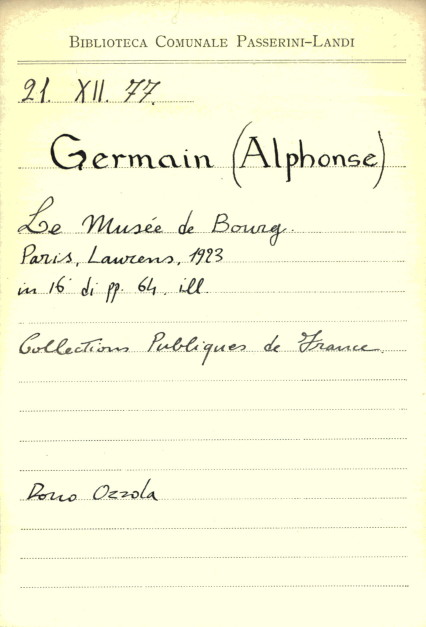 BIBLIOTECA COMUNALE PASSERINI-LANDI
21. XII. 77.
Germain (Alphonse)
Le Musée de Bourg.
Paris, Laurens, 1923
in 16° di pp. 64. ill.
Collections Publiques de France.
Dono Ozzola